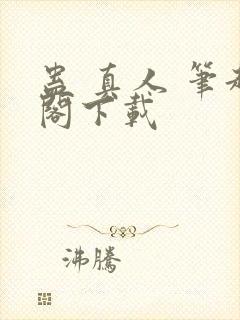 蛊真人 筆趣
閣下載
沸騰